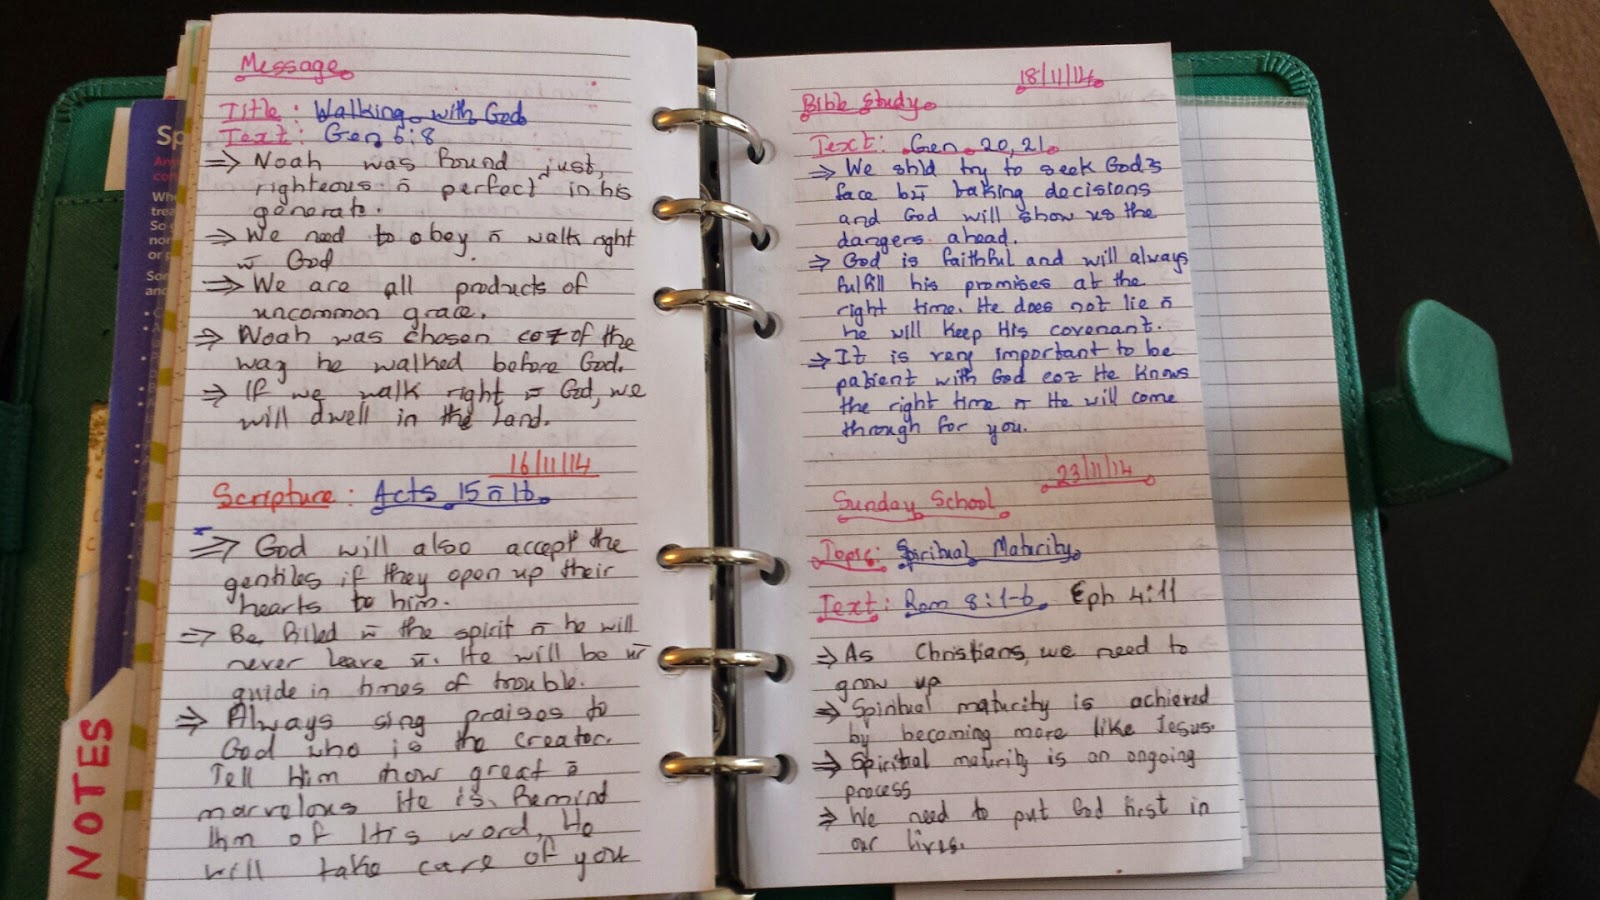 Message
Title: Walking with God
Text: Gen 6:8
⇒ Noah was found just,
righteous n̄ perfect in his
generatn.
⇒ We need to obey n̄ walk right
w̄ God
⇒ We are all products of
uncommon grace.
⇒ Noah was chosen coz of the
way he walked before God.
⇒ If we walk right w̄ God, we
will dwell in the land.
16/11/14
Scripture: Acts 15 n̄ 16
⇒ God will also accept the
gentiles if they open up their
hearts to him.
⇒ Be filled w̄ the spirit n̄ he will
never leave ū. He will be ur
guide in times of trouble.
⇒ Always sing praises to
God who is the creator.
Tell Him how great n̄
marvelous He is. Remind
Him of His word, He
will take care of you
NOTES
Sp
18/11/14
Bible Study
Text: Gen 20, 21
⇒ We shld try to seek God's
face b4 taking decisions
and God will show us the
dangers ahead.
⇒ God is faithful and will always
fulfill his promises at the
right time. He does not lie n̄
he will keep His covenant.
⇒ It is very important to be
patient with God coz He knows
the right time n̄ He will come
through for you.
23/11/14
Sunday School
Topic: Spiritual Maturity
Text: Rom 8:1-6 Eph 4:11
⇒ As Christians, we need to
grow up
⇒ Spiritual maturity is achieved
by becoming more like Jesus.
⇒ Spiritual maturity is an ongoing
process
⇒ We need to put God first in
our lives.